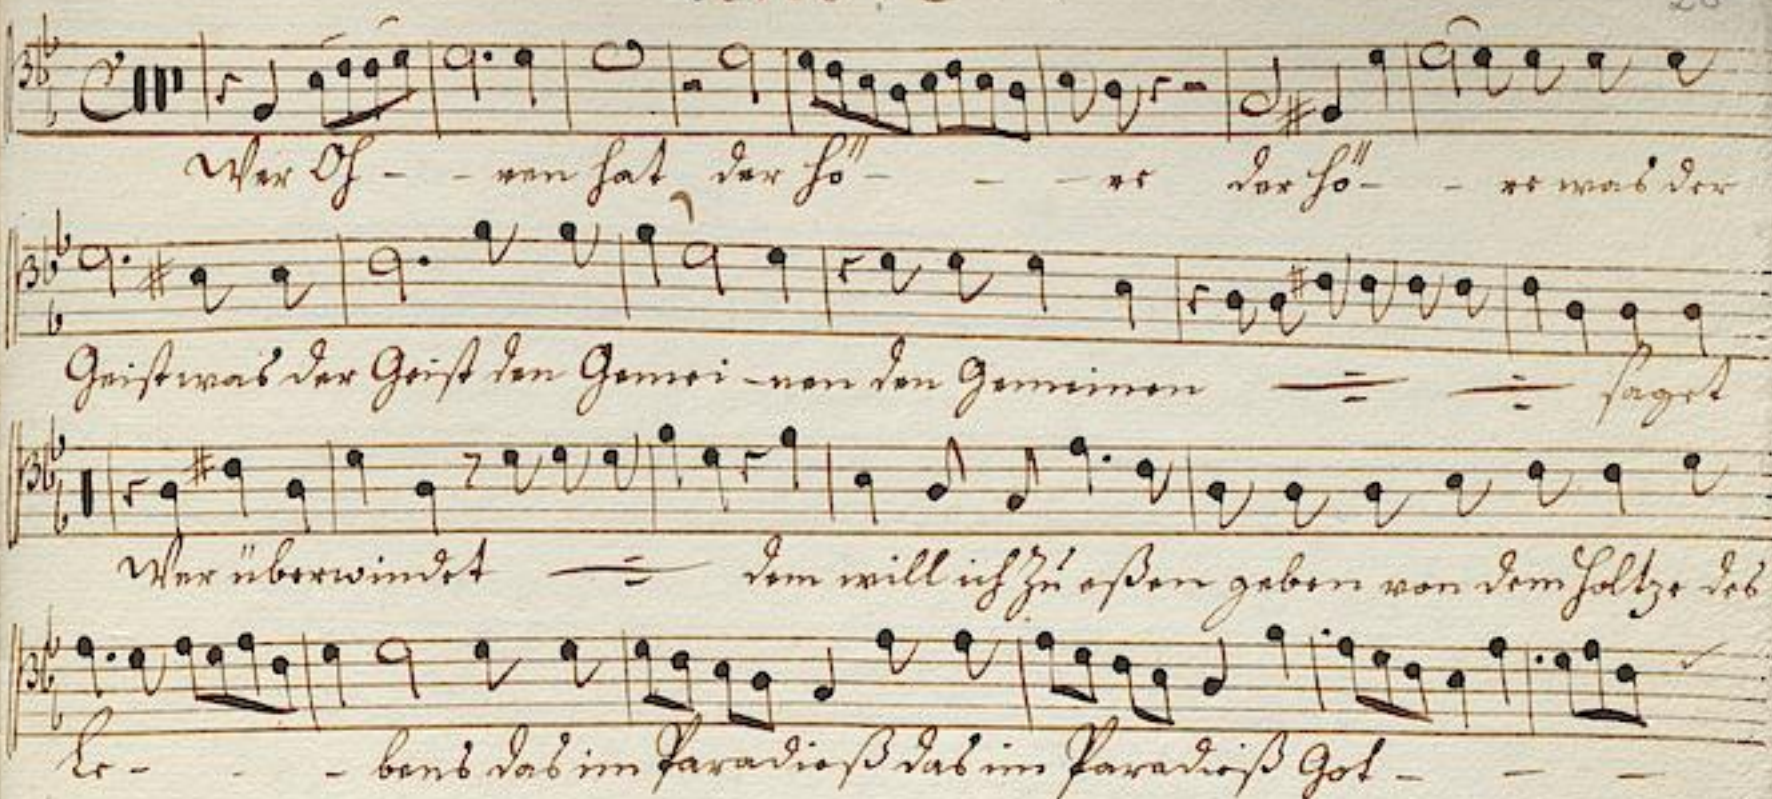 Wer Oh - - ren hat der hö - - - re der hö - - re was der
Geist was der Geist den Gemei - nen den Gemeinen saget
Wer überwindet dem will ich zu eßen geben von dem Holtze des
Le - - - bens das im Paradieß das im Paradieß Got - - -